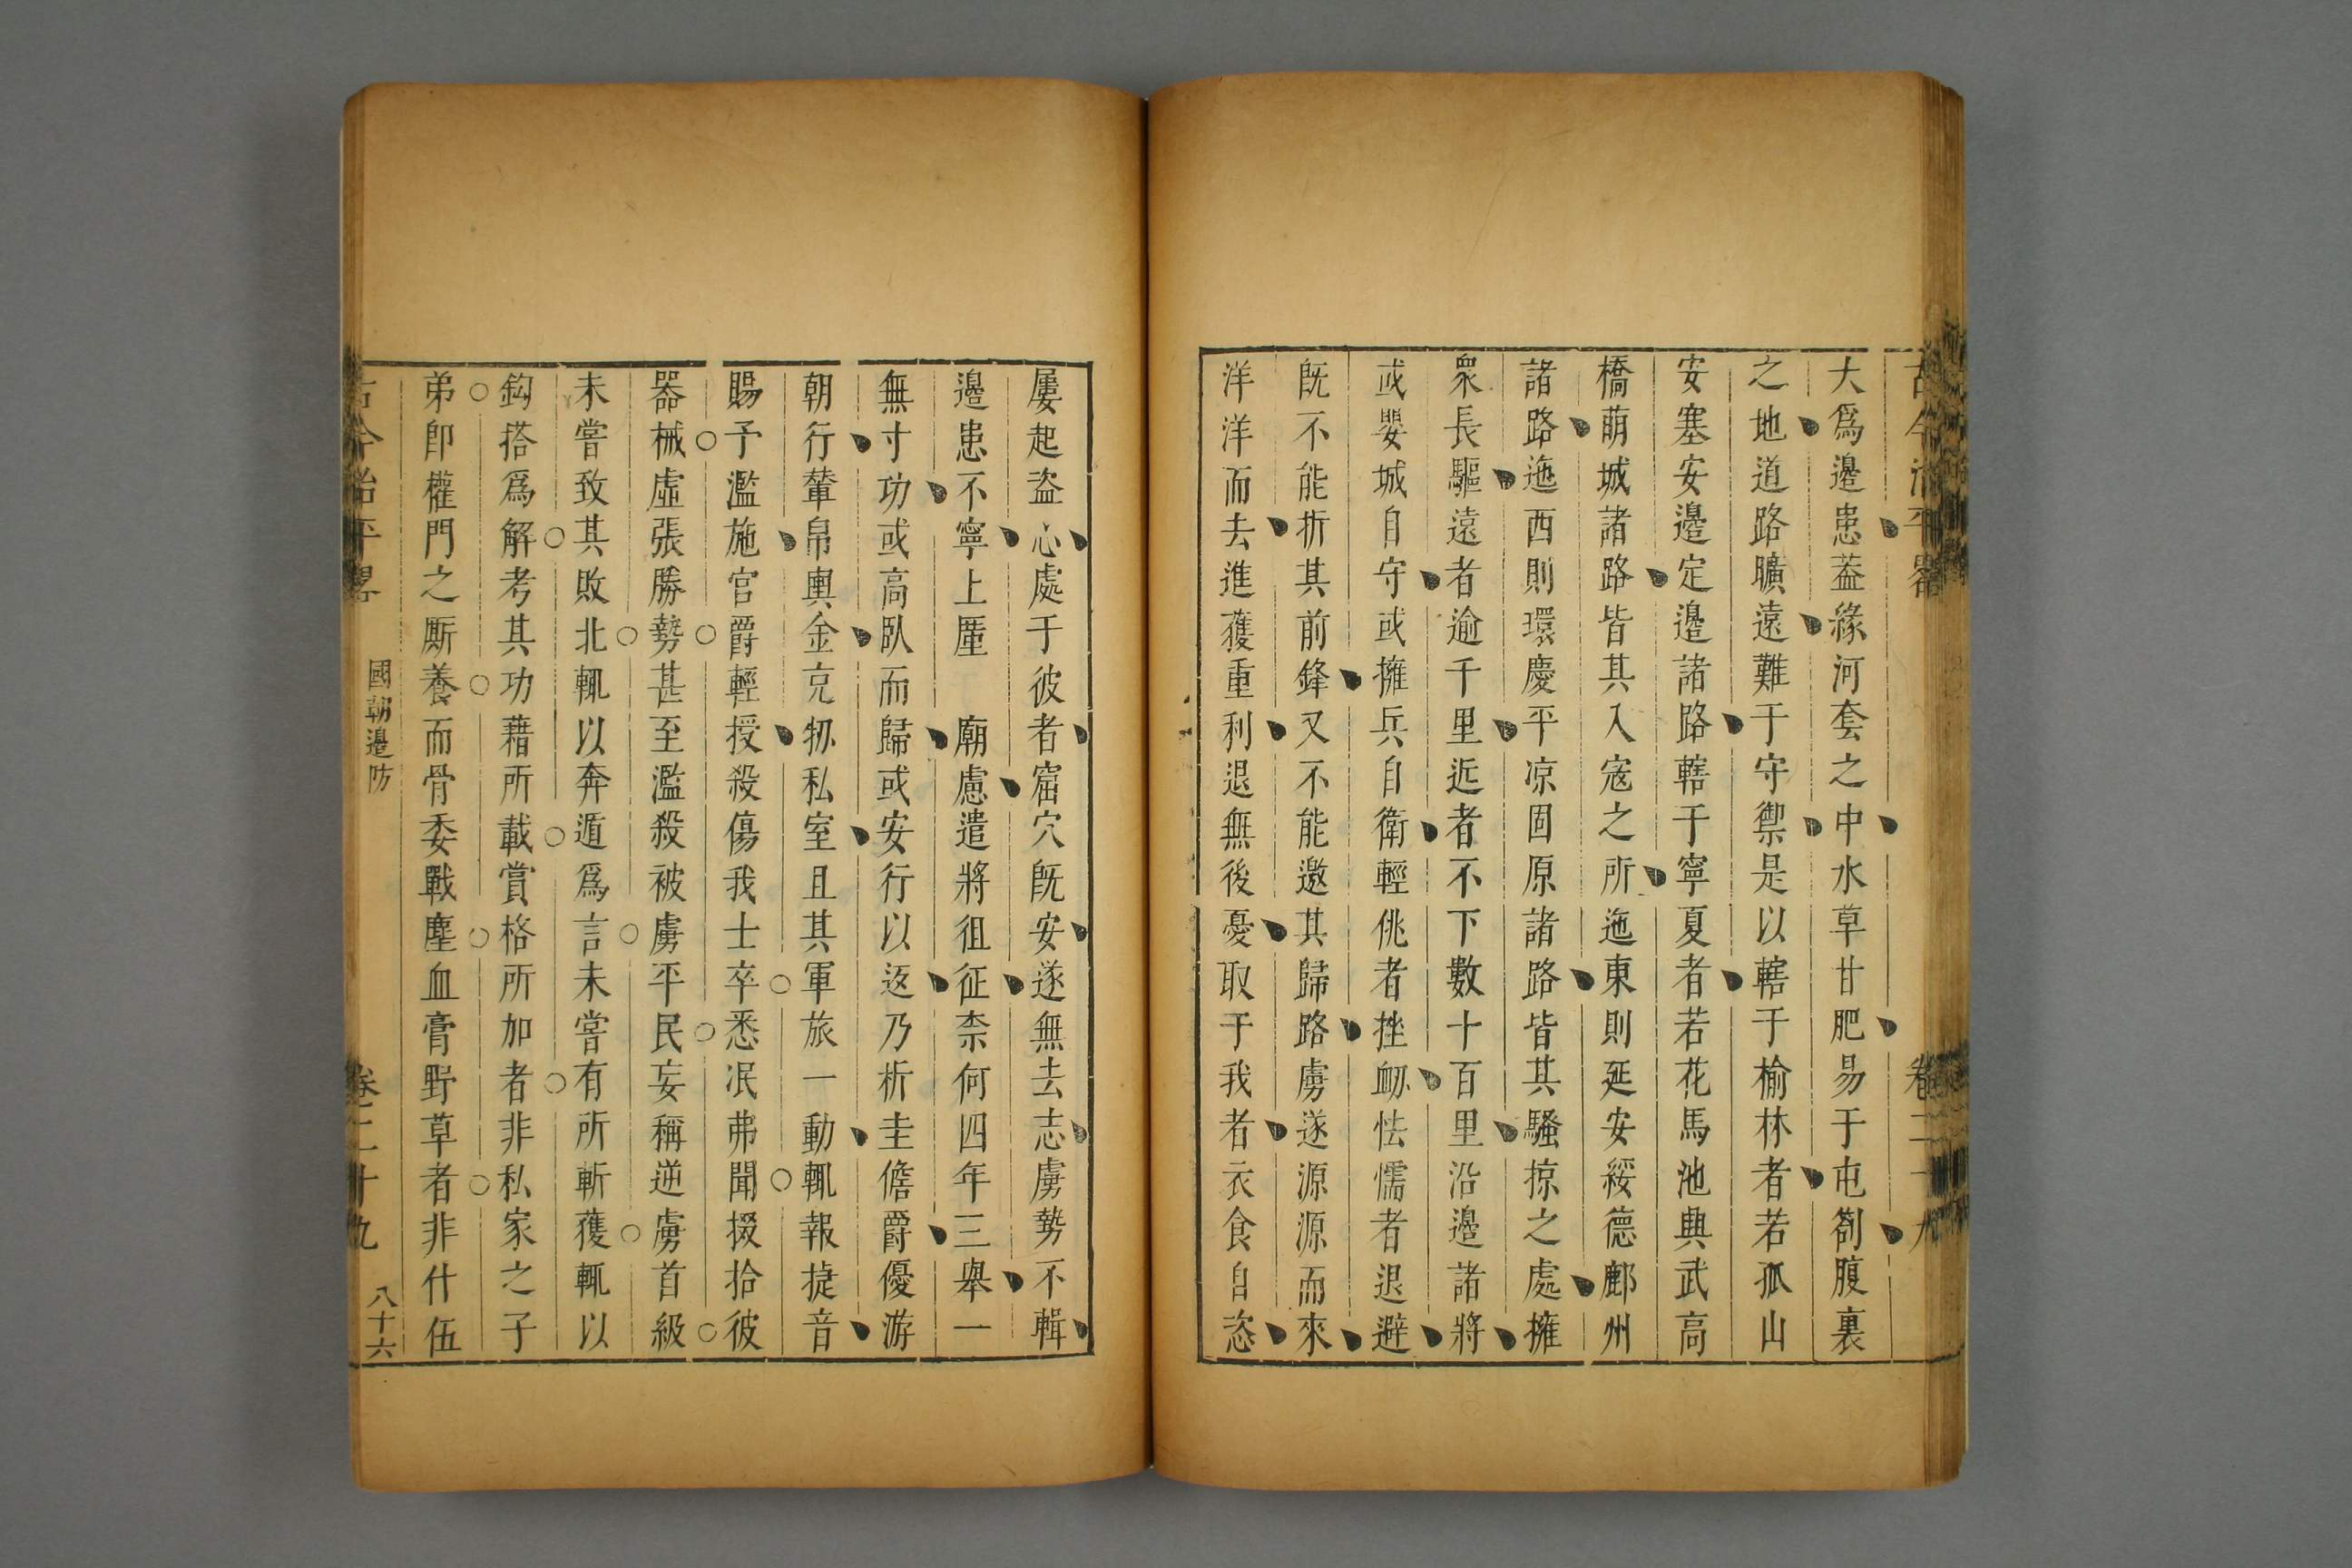 大爲邊患葢緣河套之中水草甘肥易于屯劄腹裏
之地道路曠遠難于守禦是以轄于榆林者若孤山
安塞安邊定邊諸路轄于寧夏者若花馬池興武高
橋萌城諸路皆其入寇之所迤東則延安綏德鄜州
諸路迤西則環慶平凉固原諸路皆其騷掠之處擁
衆長驅遠者逾千里近者不下數十百里沿邊諸將
或嬰城自守或擁兵自衛輕佻者挫衂怯懦者退避
旣不能折其前鋒又不能邀其歸路虜遂源源而來
洋洋而去進獲重利退無後憂取于我者衣食自恣
屢起盜心處于彼者窟穴旣安遂無去志虜勢不輯
邊患不寧上厪 廟慮遣將徂征柰何四年三舉一
無寸功或高臥而歸或安行以返乃析圭儋爵優游
朝行輦帛輿金充牣私室且其軍旅一動輒報捷音
賜予濫施官爵輕授殺傷我士卒悉泯弗聞掇拾彼
器械虛張勝勢甚至濫殺被虜平民妄稱逆虜首級
未嘗致其敗北輒以奔遁爲言未嘗有所斬獲輒以
鈎搭爲解考其功藉所載賞格所加者非私家之子
弟卽權門之厮養而骨委戰塵血膏野草者非什伍
古今治平畧 國朝邊防 卷二十九 八十六